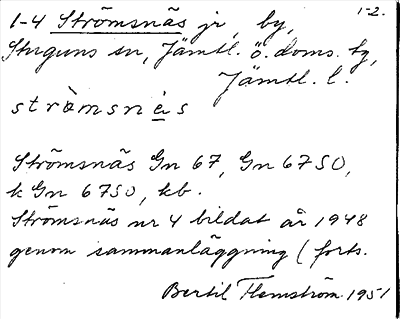 1-2.
1-4 Strömsnäs jr, by,
Stuguns sn, Jämtl. ö. doms. tg,
Jämtl. l.
strò̀msnè̱s
Strömsnäs Gn 67, Gn 67 SO,
k Gn 67SO, kb.
Strömsnäs nr 4 bildat år 1948
genom sammanläggning (forts.
Bertil Flemström 1951